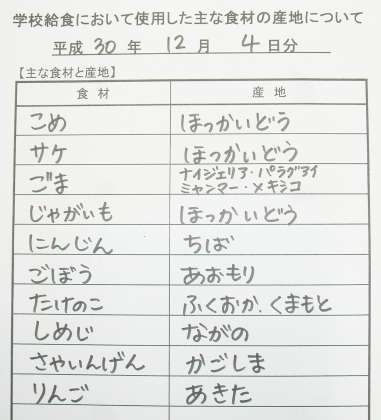 学校給食において使用した主な食材の産地について
平成 30 年 12 月 4 日分
【主な食材と産地】
食材 産地
こめ ほっかいどう
サケ ほっかいどう
ごま ナイジェリア・パラグアイ
ミャンマー・メキシコ
じゃがいも ほっかいどう
にんじん ちば
ごぼう あおもり
たけのこ ふくおか.くまもと
しめじ ながの
さやいんげん かごしま
りんご あきた